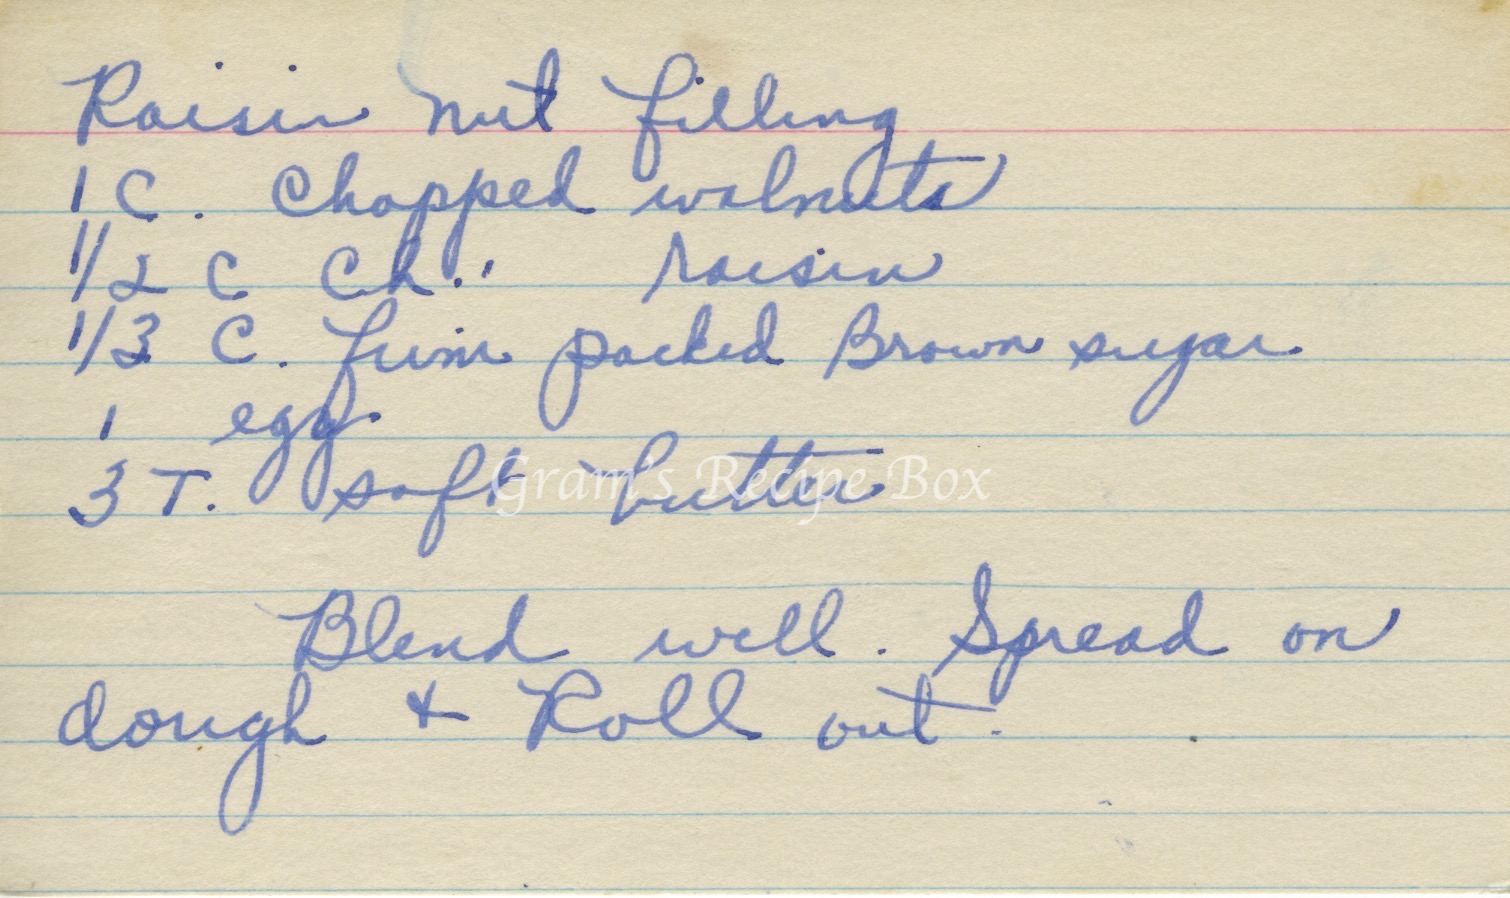 Raisin nut filling
1 C. Chopped walnuts
1/2 C Ch. raisin
1/3 C. firm packed Brown sugar
1 egg
3 T. soft butter
Gram's Recipe Box
Blend well. Spread on
dough & Roll out.